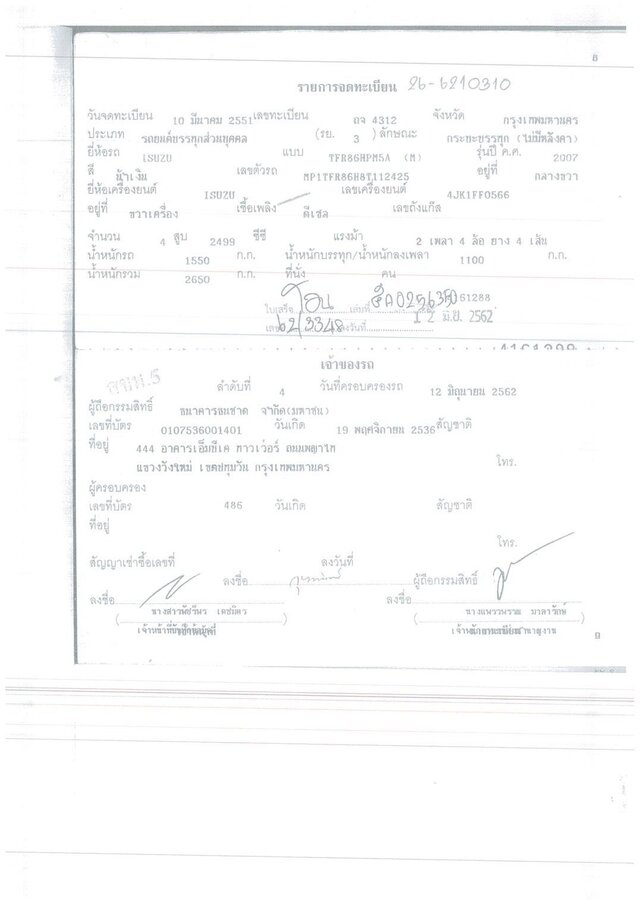 8
รายการจดทะเบียน 26-6210310
วันจดทะเบียน 10 มีนาคม 2551 เลขทะเบียน ถจ 4312 จังหวัด กรุงเทพมหานคร
ประเภท รถยนต์บรรทุกส่วนบุคคล (รย. 3 ) ลักษณะ กระบะบรรทุก (ไม่มีหลังคา)
ยี่ห้อรถ ISUZU แบบ TFR86HPM5A (M) รุ่นปี ค.ศ. 2007
สี น้ำเงิน เลขตัวรถ MP1TFR86H8T112425 อยู่ที่ กลางขวา
ยี่ห้อเครื่องยนต์ ISUZU เลขเครื่องยนต์ 4JK1FF0566
อยู่ที่ ขวาเครื่อง เชื้อเพลิง ดีเซล เลขถังแก๊ส
จำนวน 4 สูบ 2499 ซีซี แรงม้า 2 เพลา 4 ล้อ ยาง 4 เส้น
น้ำหนักรถ 1550 ก.ก. น้ำหนักบรรทุก/น้ำหนักลงเพลา 1100 ก.ก.
น้ำหนักรวม 2650 ก.ก. ที่นั่ง คน
ใบเสร็จ โอน เลขที่
62/3348 ลงวันที่ 12 มิ.ย. 2562
เจ้าของรถ
ลำดับที่ 4 วันที่ครอบครองรถ 12 มิถุนายน 2562
ผู้ถือกรรมสิทธิ์ ธนาคารธนชาต จำกัด(มหาชน)
เลขที่บัตร 0107536001401 วันเกิด 19 พฤศจิกายน 2536 สัญชาติ
ที่อยู่ 444 อาคารเอ็มบีเค ทาวเวอร์ ถนนพญาไท
แขวงวังใหม่ เขตปทุมวัน กรุงเทพมหานคร โทร.
ผู้ครอบครอง
เลขที่บัตร 486 วันเกิด สัญชาติ
ที่อยู่
โทร.
สัญญาเช่าซื้อเลขที่ ลงวันที่
ลงชื่อ ผู้ถือกรรมสิทธิ์
ลงชื่อ ลงชื่อ
9